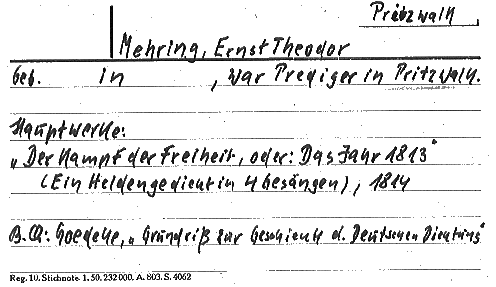 Pritzwalk
Mehring, Ernst Theodor
geb. in , war Prediger in Pritzwalk.
Hauptwerke:
„Der Kampf der Freiheit, oder: Das Jahr 1813"
(Ein Heldengedicht in 4 Gesängen), 1814
B.Qu: Goedeke, „Grundriß zur Geschichte d. Deutschen Dichtung"
Reg. 10. Stichnote 1. 50. 232000. A. 803. S. 4062